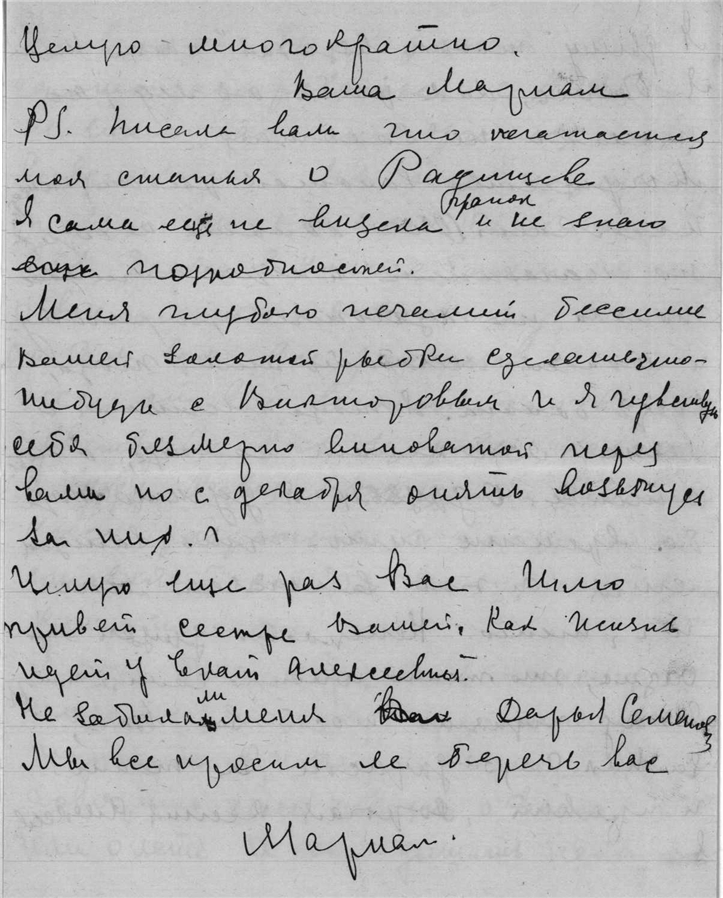 Целую многократно.
Ваша Мариам
PS. Писала вам что печатается
моя статья о Радищеве
Я сама еще не видела гранок и не знаю
подробностей.
Меня глубоко печалит бессилие
вашей золотой рыбки сделать что-
нибудь с Викторовым и я чувствую
себя безмерно виноватой перед
вами но с декабря опять возьмусь
за них.
Целую еще раз Вас Шлю
привет сестре вашей. Как жизнь
идет у Екат Алексеевны.
Не забыла ли меня Дарья Семенов
Мы все просим ее беречь вас
Мариам.